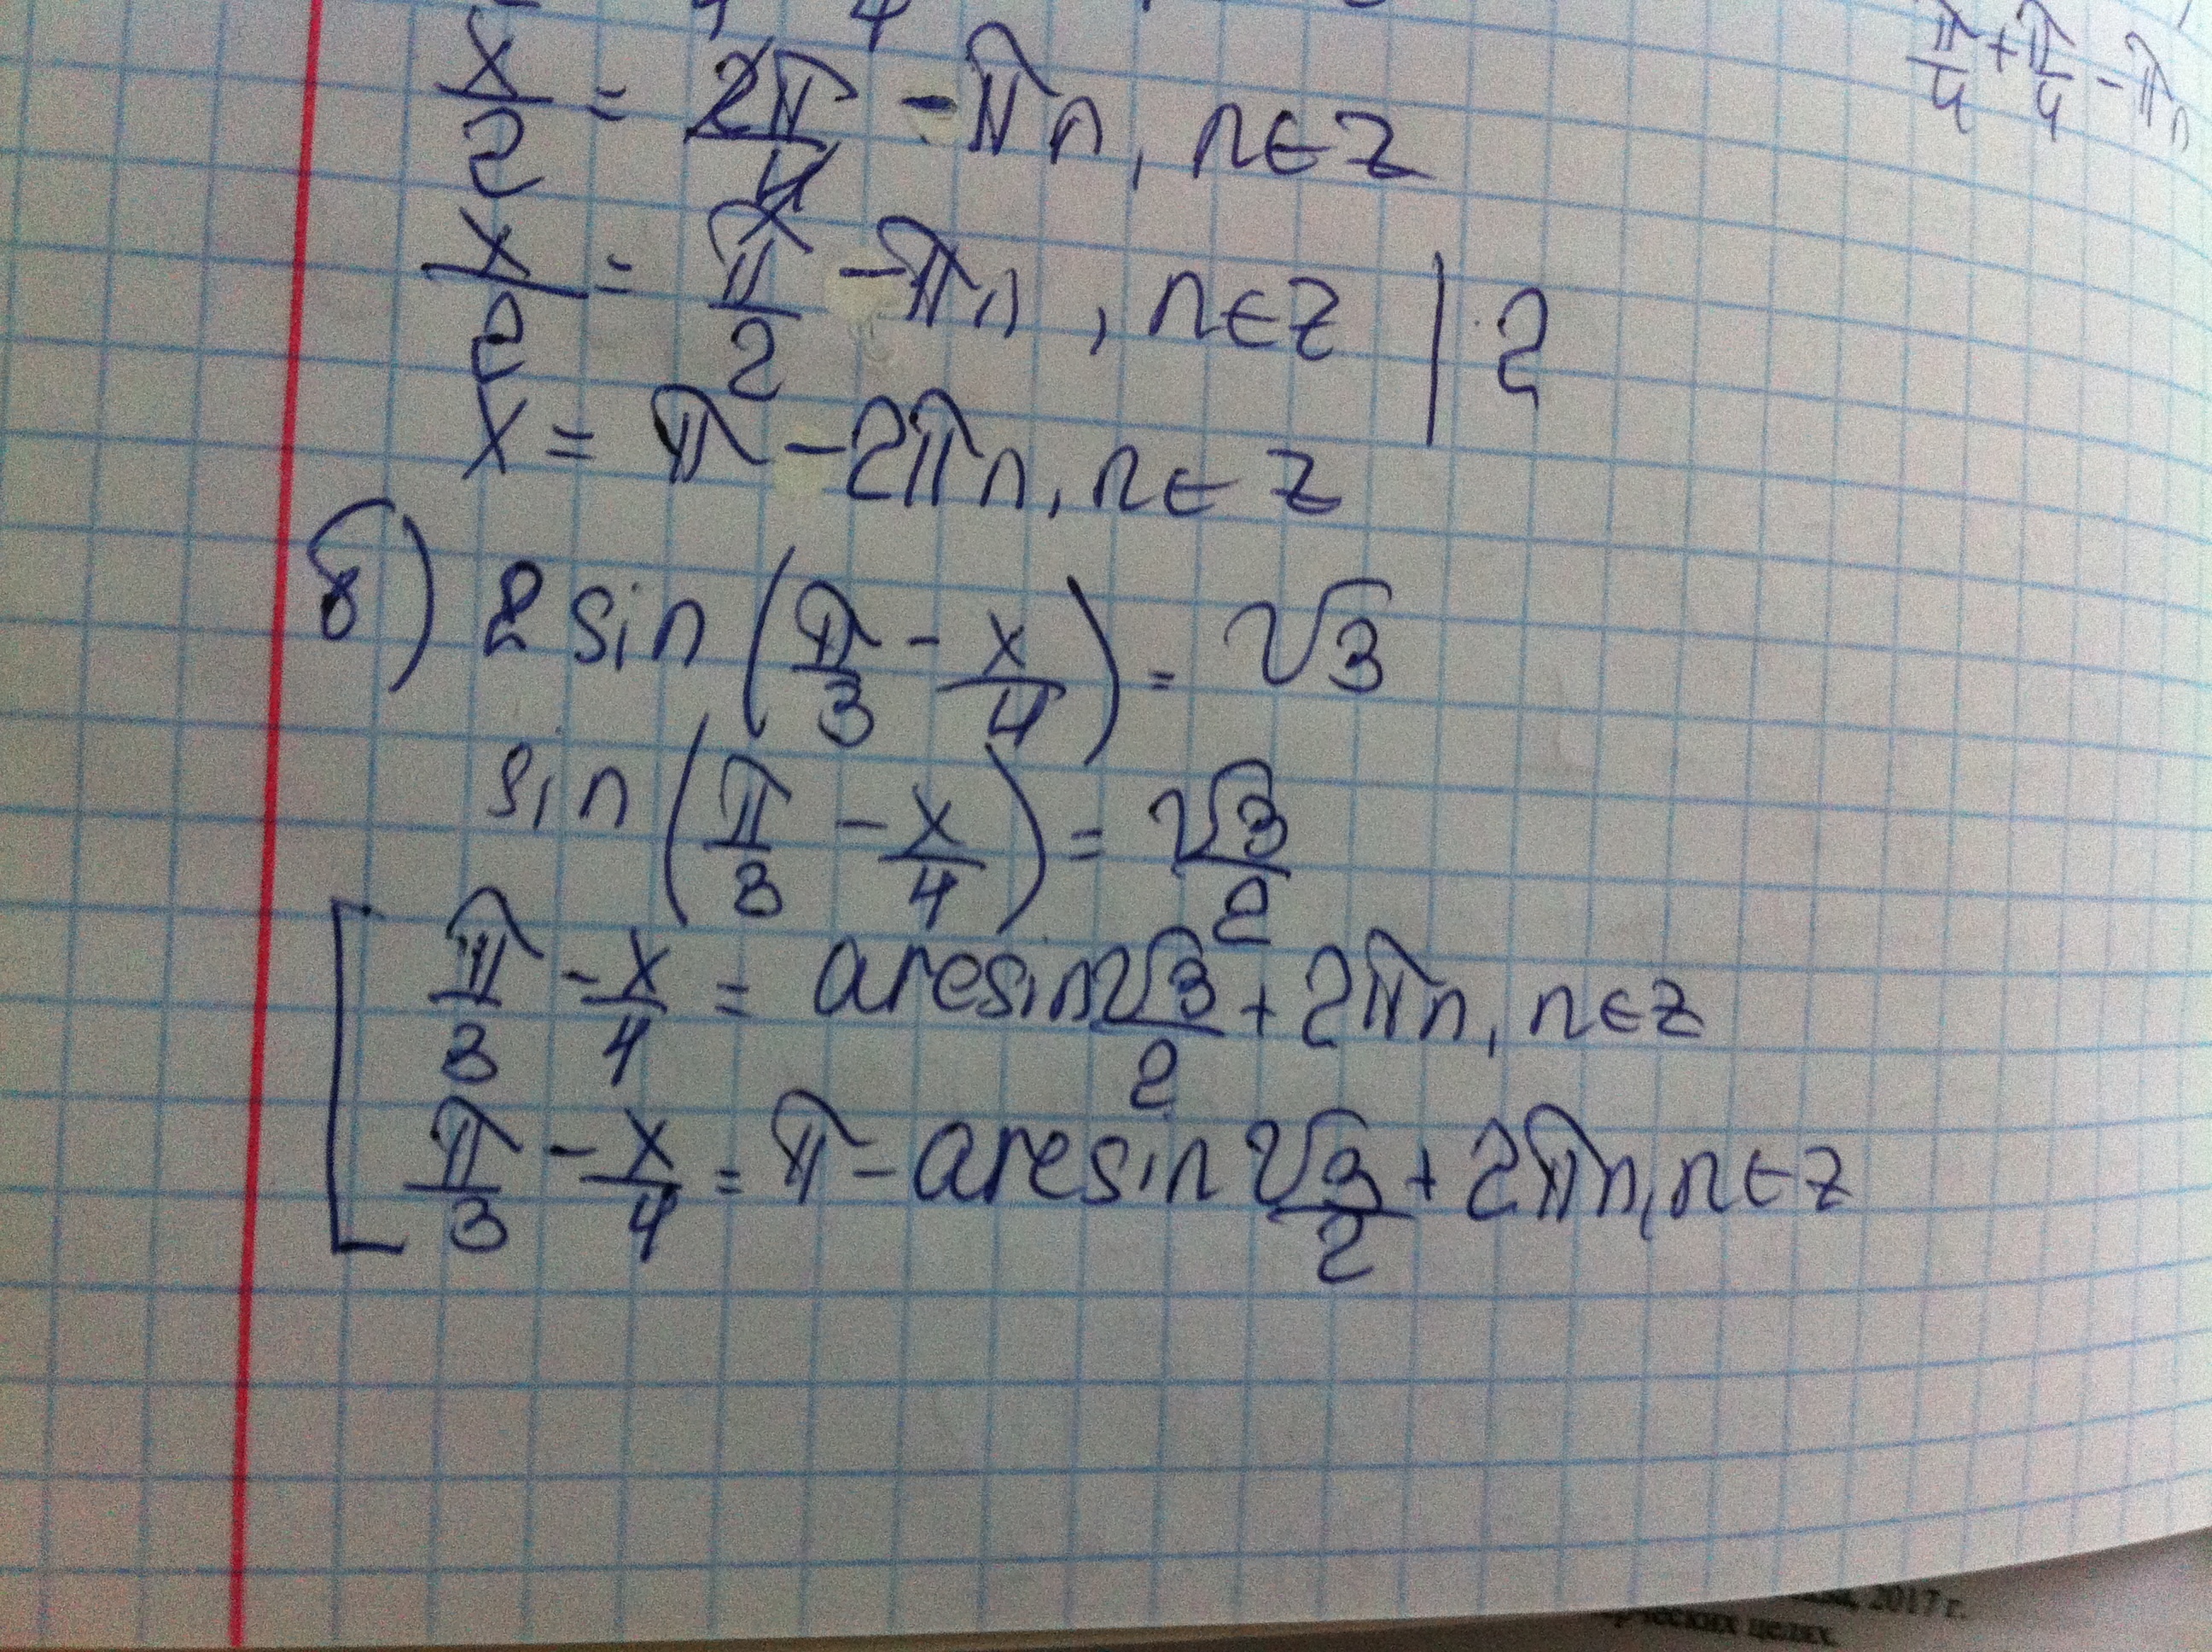 x/2 = 2π/4 - πn, n∈z
x/2 = π/2 - πn, n∈z | 2
x = π - 2πn, n∈z
б) 2 sin (π/3 - x/4) = √3
sin (π/3 - x/4) = √3/2
π/3 - x/4 = arcsin √3/2 + 2πn, n∈z
π/3 - x/4 = π - arcsin √3/2 + 2πn, n∈z
π/4 + π/4 - πn
2017 г.
целях.